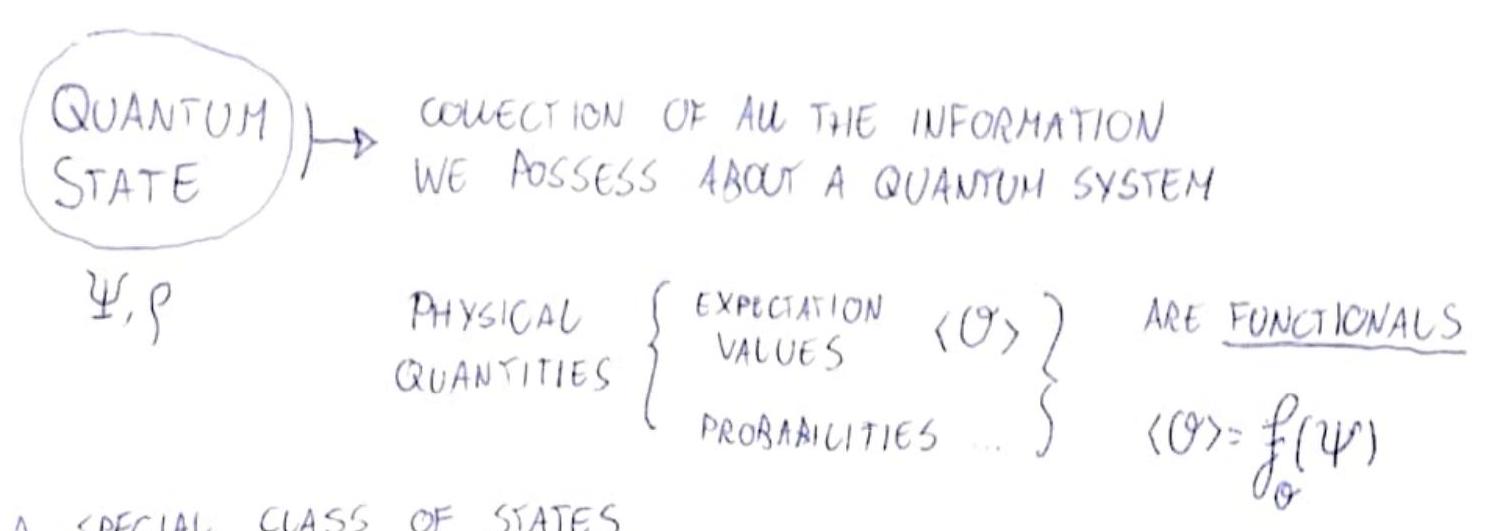 QUANTUM
STATE
COLLECTION OF ALL THE INFORMATION
WE POSSESS ABOUT A QUANTUM SYSTEM
Ψ, ρ
PHYSICAL
QUANTITIES
EXPECTATION
VALUES ⟨O⟩
PROBABILITIES ...
ARE FUNCTIONALS
⟨O⟩ = f_O(Ψ)
A SPECIAL CLASS OF STATES